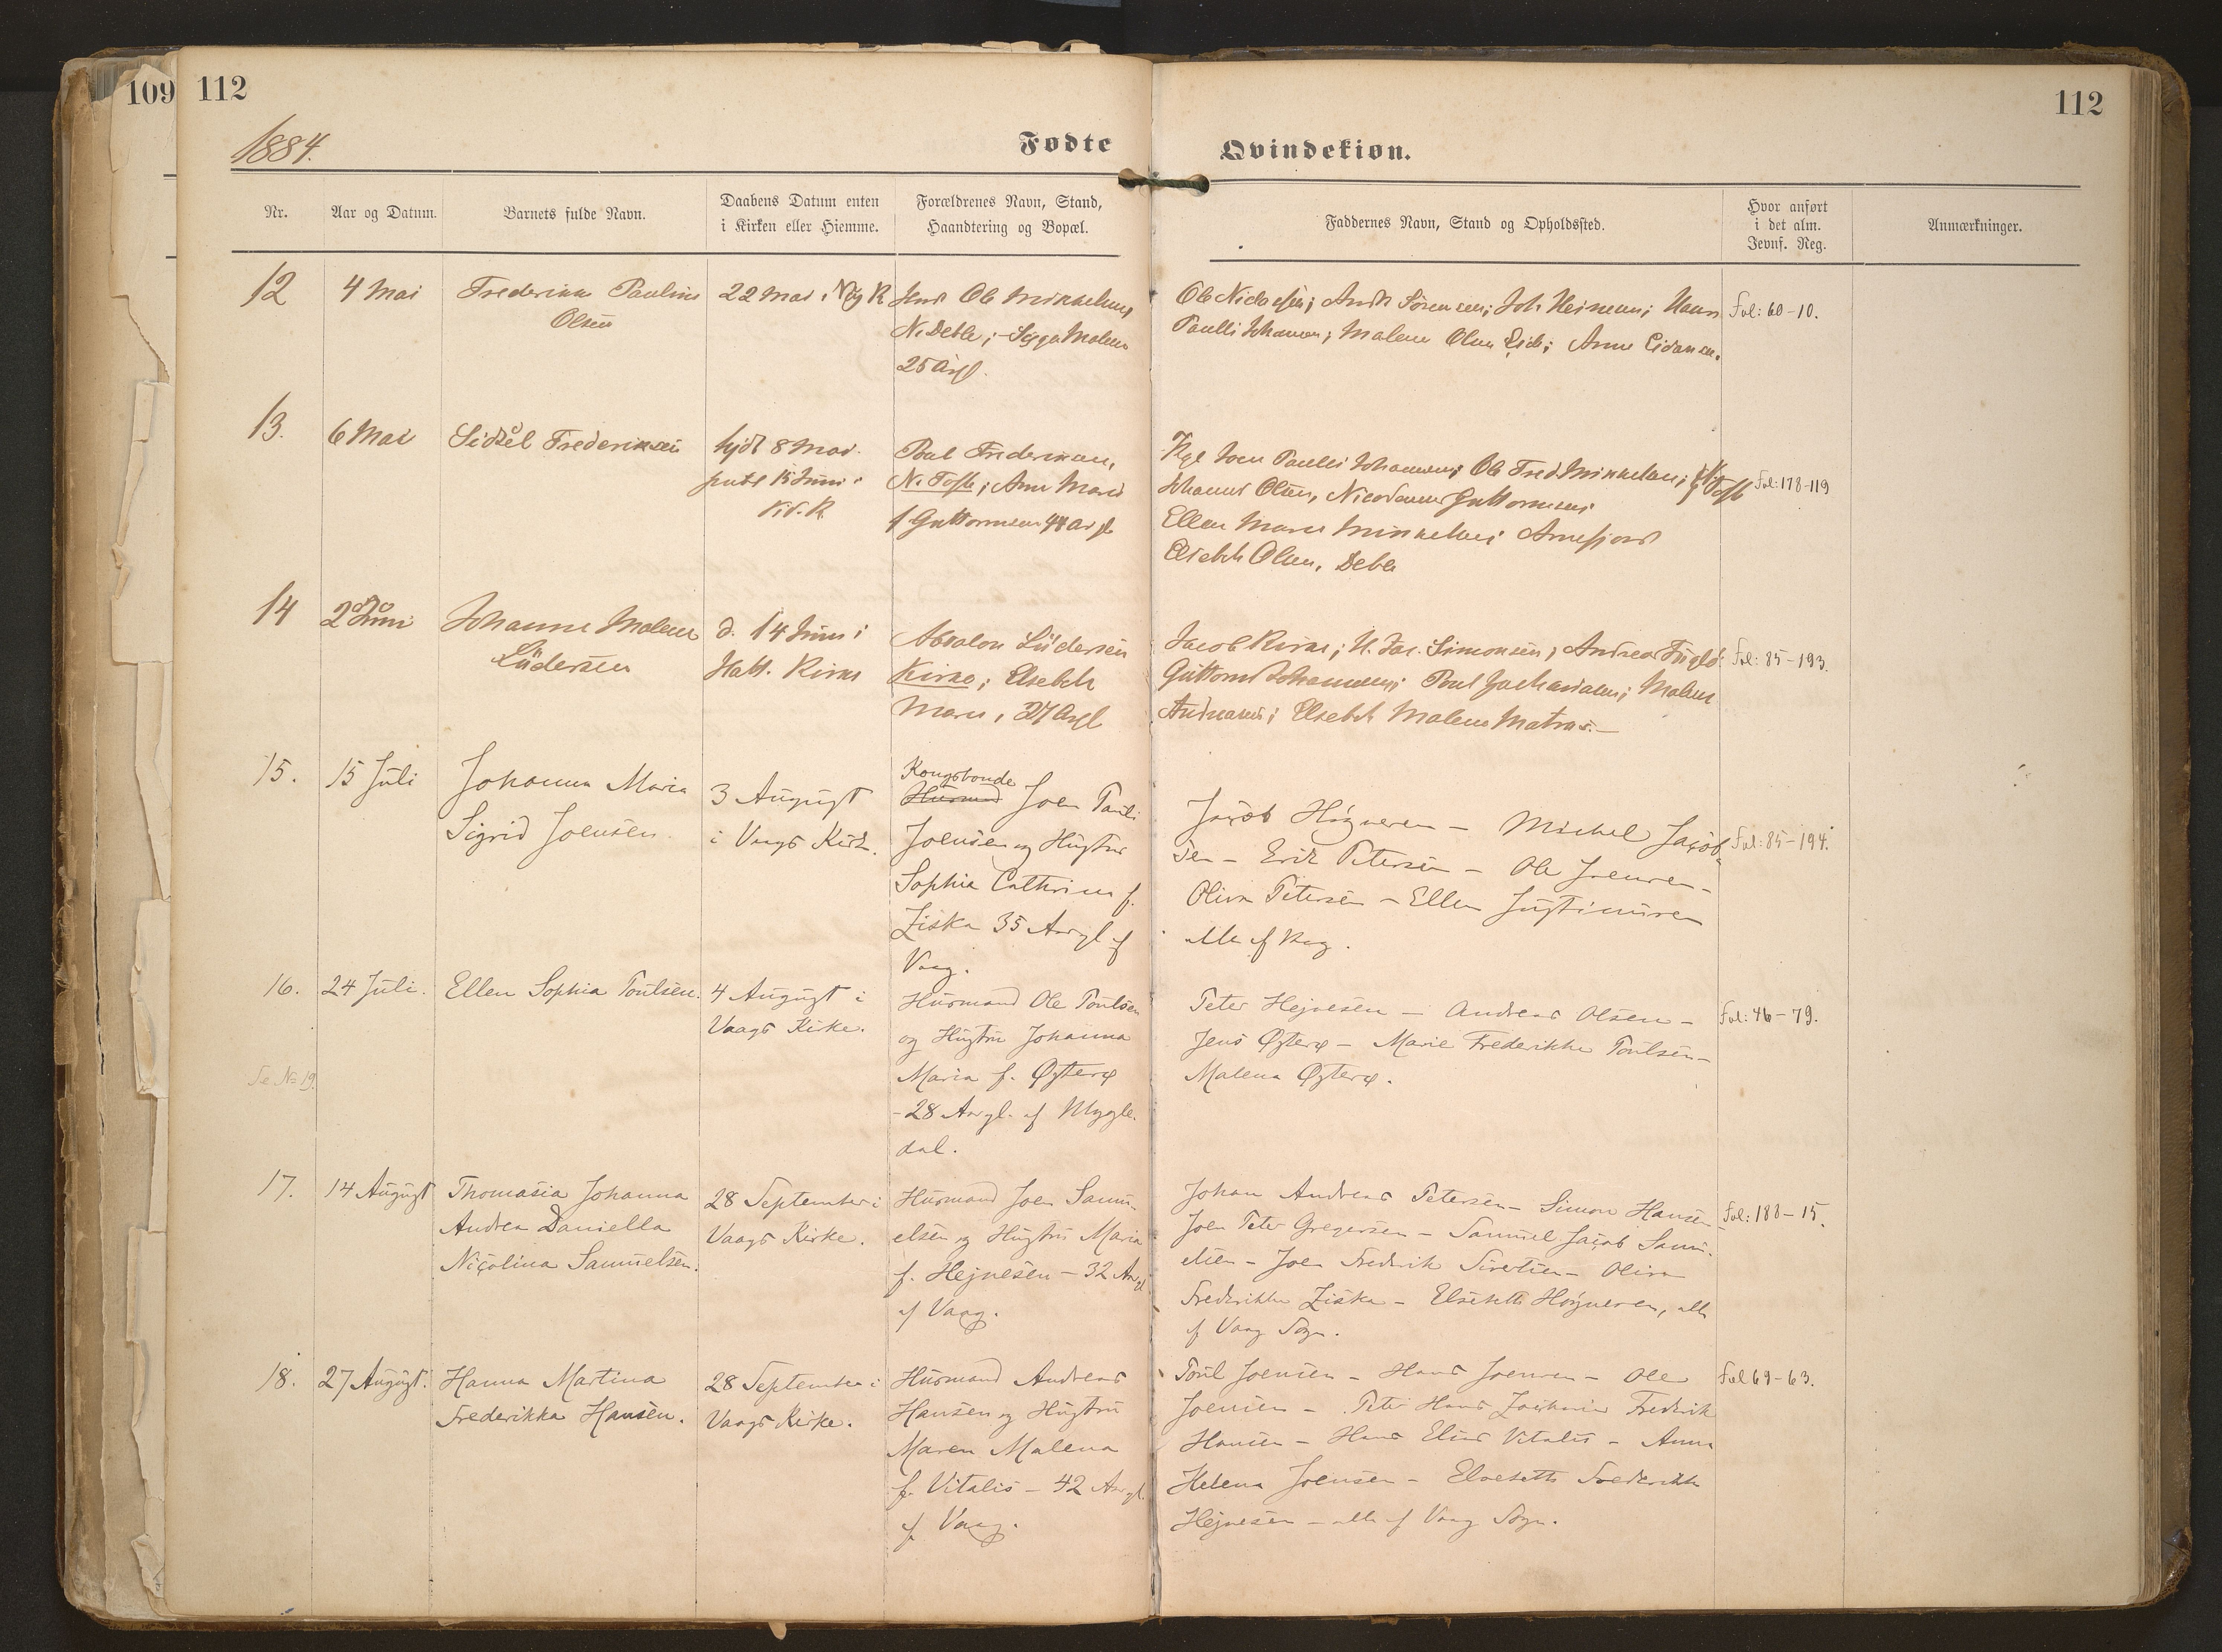 109
112
112
1884.
Fødte
Qvindekiøn.
Nr.
Aar og Datum.
Barnets fulde Navn.
Daabens Datum enten
i Kirken eller Hiemme.
Forældrenes Navn, Stand,
Haandtering og Bopæl.
Faddernes Navn, Stand og Opholdssted.
Hvor anført
i det alm.
Jevnf. Reg.
Anmærkninger.
12
4 Mai
Frederikke Pauline
Olsen
22 Mai i
Ole Mikkelsen,
N. Deble; Sigga Malene
25 Aar gl.
Andr Sørensen; Joh Heinesen; Hans
Poulli Johannesen; Malene Olsen Eide; Anne
Fol: 60-10.
13.
6 Mai
Sidsel Frederiksen
hjdt 8 Mai.
15 Juni i
Poul Frederiksen,
N. Tofte; Anne Marie
f Guttormsen 44 Aar gl
Joen Poulli Johannesen; Ole Fred. Mikkelsen; Tofte
Johannes Olsen, Nicodemus Guttormsen;
Ellen Marie Mikkelsen; Arnefjord
Elsebeth Olsen, Deble
Fol: 178-119
14
2 Juni
Johanne Malene
Lüdersen
d. 14 Juni i
Kirke
Absalon Lüdersen
Kirke; Elsebeth
Marie, 27 Aar gl
Jacob Kirke; H. Jac. Simonsen; Andreas Fuglø;
Guttorm Johannesen; Poul Zachariasen; Malene
Andreasen; Elsebeth Malene Matras.
Fol: 85-193.
15.
15 Juli
Johanna Maria
Sigrid Joensen.
3 August
i Vaags Kirke.
Kongsbonde
Husmand Joen Pauli
Joensen og Hustru
Sophia Cathrine f.
Ziska 35 Aar gl af
Vaag.
Jacob Høgnesen - Michel Jacob-
sen - Erik Petersen - Ole Joensen -
Oliva Petersen - Ellen Justinusen
alle af Vaag.
Fol: 85-194.
16.
24 Juli.
Ellen Sophia Poulsen.
4 August i
Vaags Kirke.
Husmand Ole Poulsen
og Hustru Johanna
Maria f. Østerø
-28 Aar gl. af Nygle-
dal.
Peter Hejnesen - Andreas Olsen -
Jens Østerø - Marie Frederikke Poulsen -
Malena Østerø.
Fol: 46-79.
Se No 19.
17.
14 August
Thomasia Johanna
Andrea Daniella
Nicolina Samuelsen.
28 September i
Vaags Kirke.
Husmand Joen Samu-
elsen og Hustru Maria
f. Hejnesen - 32 Aar gl
af Vaag.
Johan Andreas Petersen - Simon Hansen
Joen Peter Gregersen - Samuel Jacob Samu-
elsen - Joen Frederik Sivertsen - Oliva
Frederikke Ziska - Elsebeth Høgnesen, alle
af Vaag Sogn.
Fol: 188-15.
18.
27 August.
Hanna Martina
Frederikka Hansen.
28 September i
Vaags Kirke.
Husmand Andreas
Hansen og Hustru
Maren Malena
f. Vitalis - 42 Aar gl.
af Vaag.
Poul Joensen - Hans Joensen - Ole
Joensen - Peter Hans Zacharias Frederik
Hansen - Hans Elias Vitalis - Anna
Helena Joensen - Elsebeth Frederikke
Hejnesen - alle af Vaag Sogn.
Fol 69-63.